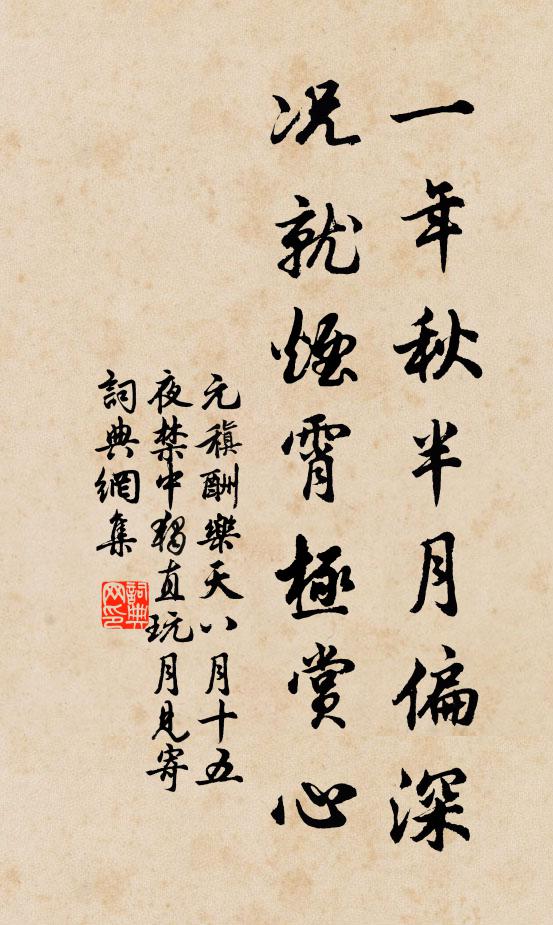 一年秋半月偏深
况就煙霄極賞心
元稹酬樂天八月十五
夜禁中獨直玩月見寄
詞典網集
詞典網印